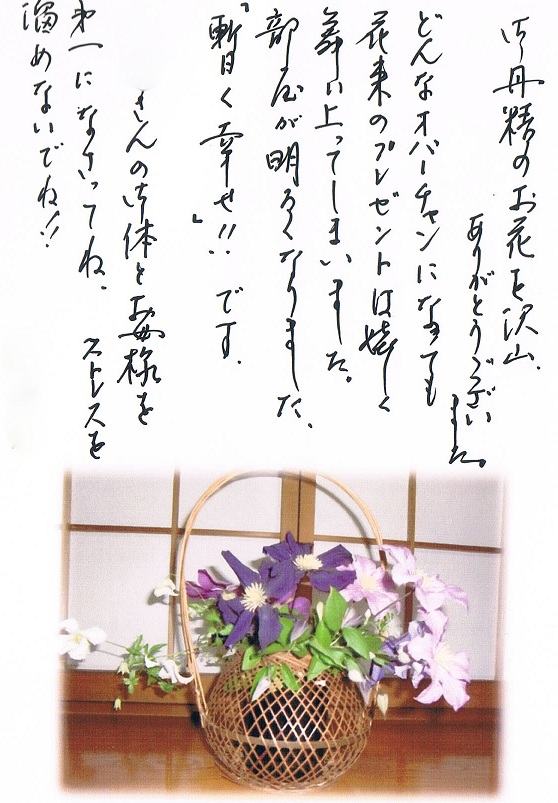 御丹精のお花を沢山、
ありがとうございました。
どんなオバーチャンになっても
花束のプレゼントは嬉しく
舞い上ってしまいました。
部屋が明るくなりました。
「暫く幸せ!!」です。
さんの御体とお母様を
第一になさってね。ストレスを
溜めないでね!!